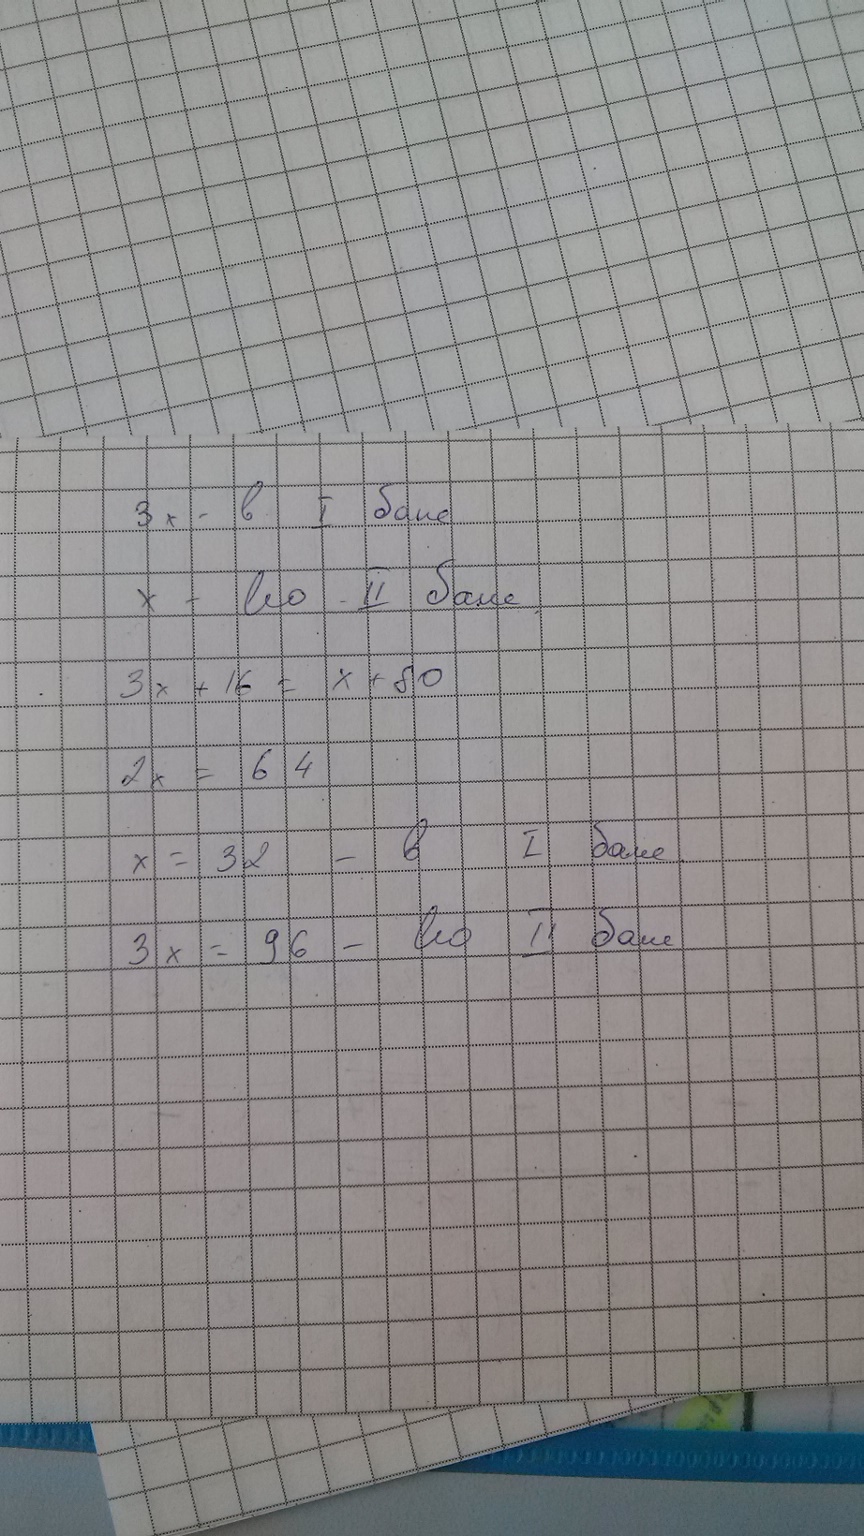 3x - в I баке
x - во II баке
3x + 16 = x + 80
2x = 64
x = 32 - в I баке
3x = 96 - во II баке